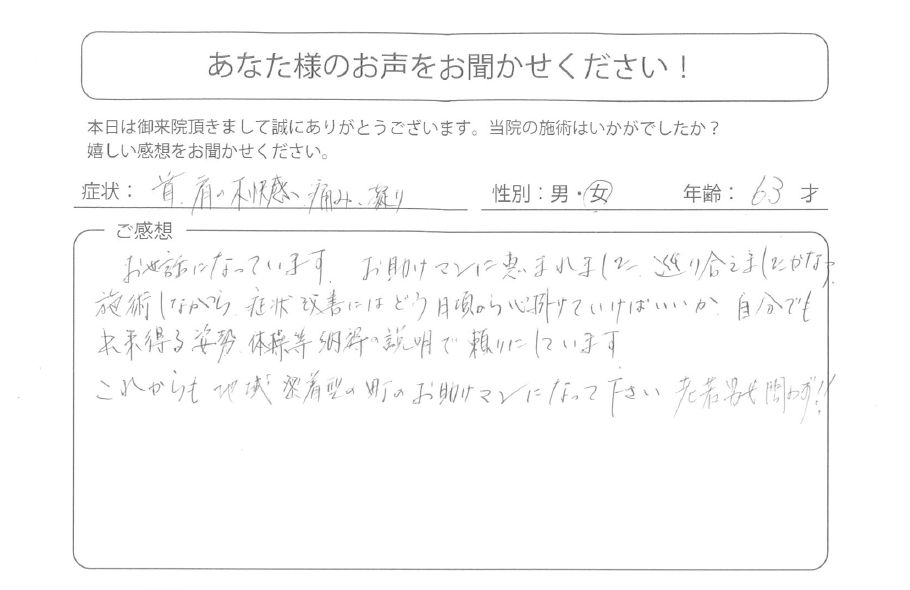 あなた様のお声をお聞かせください！
本日は御来院頂きまして誠にありがとうございます。当院の施術はいかがでしたか？
嬉しい感想をお聞かせください。
症状： 首、肩の不快感、痛み、凝り 性別：男・女 年齢： 63 才
ご感想
お世話になっています。お助けマンに恵まれました、巡り合えましたかなっ
施術しながら、症状改善にはどう日頃から心掛けていけばいいか、自分でも
出来得る姿勢、体操等納得の説明で頼りにしています
これからも地域密着型の町のお助けマンになって下さい 老若男女問わず!!